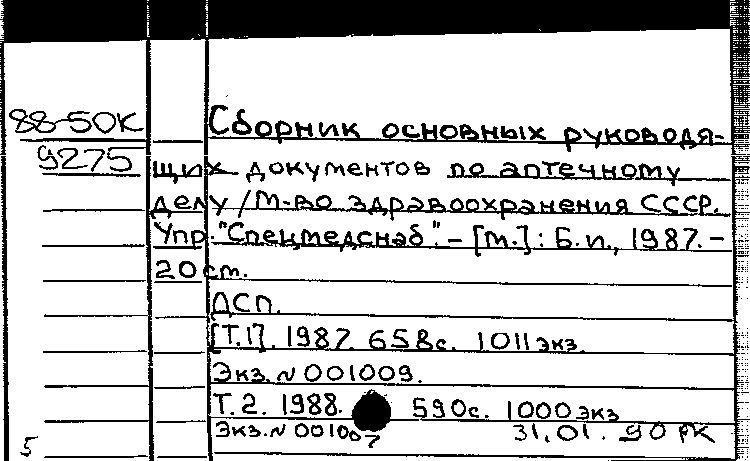 88-50К
9275
Сборник основных руководя-
щих документов по аптечному
делу / М-во здравоохранения СССР.
Упр. "Спецмедснаб". – [М.] : Б.и., 1987. –
20 см.
ДСП.
[Т.1]. 1987. 658с. 1011 экз.
Экз. N 001009.
Т. 2. 1988. 590с. 1000 экз
Экз. N 001007
31.01.90 РК
5